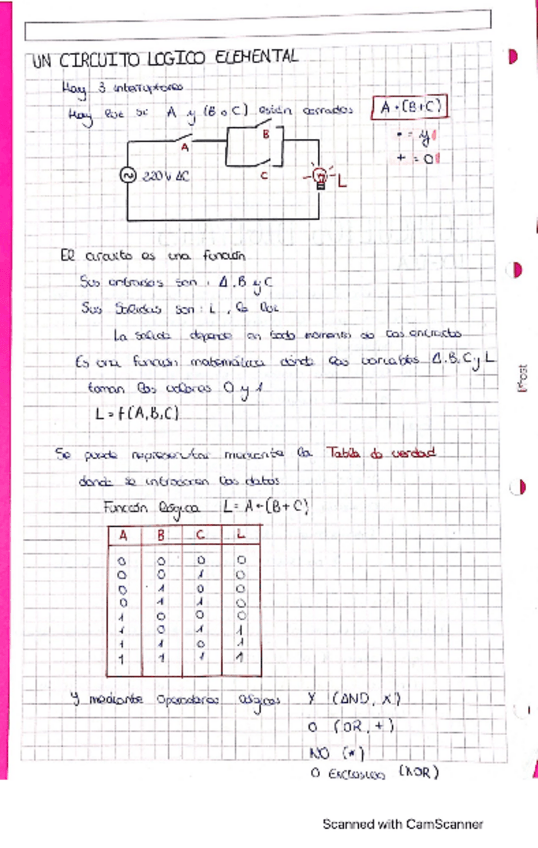 UN CIRCUITO LOGICO ELEMENTAL
Hay 3 interruptores
Hay luz si A y (B o C) están cerrados A·(B+C)
• = y
+ = o
A
B
C
220 V AC
L
El circuito es una función
Sus entradas son: A, B y C
Sus Salidas son: L, la luz
La salida depende en todo momento de las entradas
Es una función matemática donde las variables A, B, C y L
toman los valores 0 y 1
L = f(A,B,C)
Se puede representar mediante la Tabla de verdad
donde se introducen los datos
Función lógica L = A·(B+C)
A B C L
0 0 0 0
0 0 1 0
0 1 0 0
0 1 1 0
1 0 0 0
1 0 1 1
1 1 0 1
1 1 1 1
Y mediante operadores lógicos Y (AND, x)
O (OR, +)
NO (*)
O EXCLUSIVO (XOR)
Scanned with CamScanner